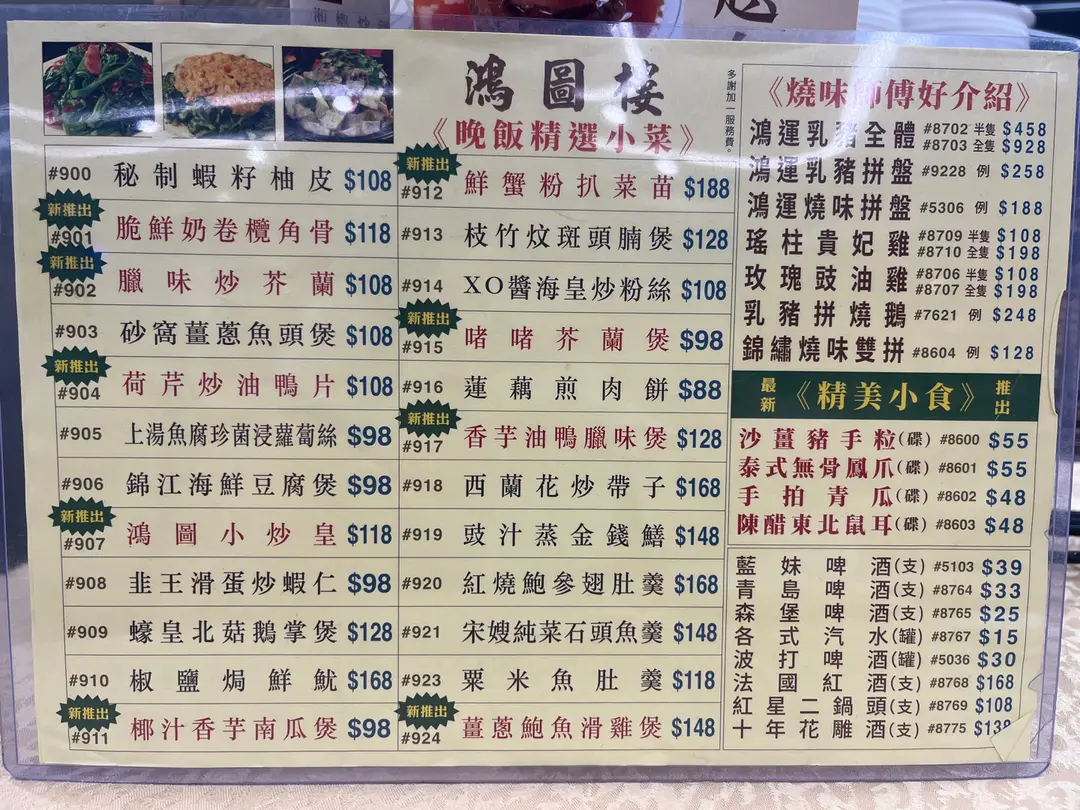 鴻圖樓
《晚飯精選小菜》
多謝加一服務費。
#900 秘制蝦籽柚皮 $108
新推出
#901 脆鮮奶卷欖角骨 $118
新推出
#902 臘味炒芥蘭 $108
#903 砂窩薑蔥魚頭煲 $108
新推出
#904 荷芹炒油鴨片 $108
#905 上湯魚腐珍菌浸蘿蔔絲 $98
#906 錦江海鮮豆腐煲 $98
新推出
#907 鴻圖小炒皇 $118
#908 韭王滑蛋炒蝦仁 $98
#909 蠔皇北菇鵝掌煲 $128
#910 椒鹽焗鮮魷 $168
新推出
#911 椰汁香芋南瓜煲 $98
新推出
#912 鮮蟹粉扒菜苗 $188
#913 枝竹炆斑頭腩煲 $128
#914 XO醬海皇炒粉絲 $108
新推出
#915 啫啫芥蘭煲 $98
#916 蓮藕煎肉餅 $88
新推出
#917 香芋油鴨臘味煲 $128
#918 西蘭花炒帶子 $168
#919 豉汁蒸金錢鱔 $148
#920 紅燒鮑參翅肚羹 $168
#921 宋嫂純菜石頭魚羹 $148
#923 粟米魚肚羹 $118
新推出
#924 薑蔥鮑魚滑雞煲 $148
《燒味師傅好介紹》
鴻運乳豬全體 #8702 半隻 $458
#8703 全隻 $928
鴻運乳豬拼盤 #9228 例 $258
鴻運燒味拼盤 #5306 例 $188
瑤柱貴妃雞 #8709 半隻 $108
#8710 全隻 $198
玫瑰豉油雞 #8706 半隻 $108
#8707 全隻 $198
乳豬拼燒鵝 #7621 例 $248
錦繡燒味雙拼 #8604 例 $128
最新《精美小食》推出
沙薑豬手粒(碟) #8600 $55
泰式無骨鳳爪(碟) #8601 $55
手拍青瓜(碟) #8602 $48
陳醋東北鼠耳(碟) #8603 $48
藍妹啤酒(支) #5103 $39
青島啤酒(支) #8764 $33
森堡啤酒(支) #8765 $25
各式汽水(罐) #8767 $15
波打啤酒(罐) #5036 $30
法國紅酒(支) #8768 $168
紅星二鍋頭(支) #8769 $108
十年花雕酒(支) #8775 $138